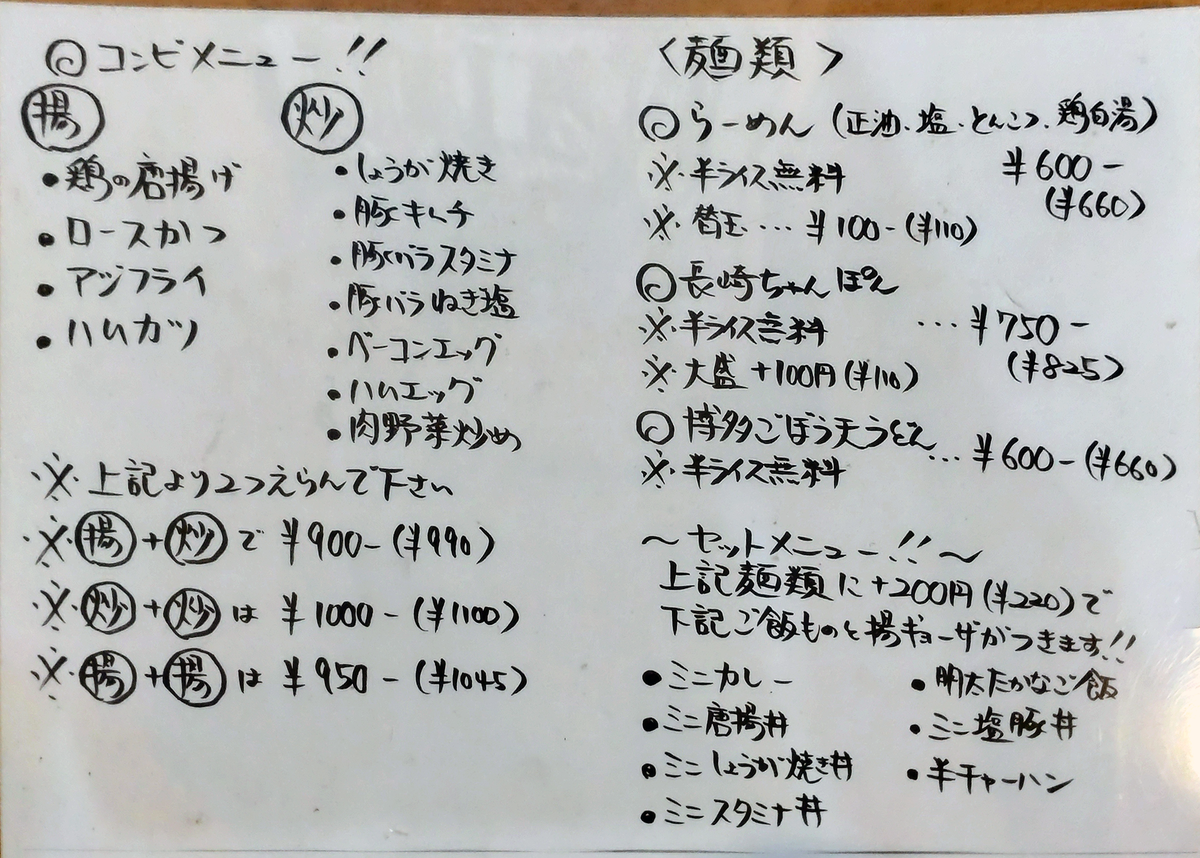 ◎コンビメニュー!!
揚
・鶏の唐揚げ
・ロースかつ
・アジフライ
・ハムカツ
炒
・しょうが焼き
・豚キムチ
・豚バラスタミナ
・豚バラねぎ塩
・ベーコンエッグ
・ハムエッグ
・肉野菜炒め
※上記より2つえらんで下さい
※揚+炒で ¥900-(¥990)
※炒+炒は ¥1000-(¥1100)
※揚+揚は ¥950-(¥1045)
〈麺類〉
◎らーめん(正油、塩、とんこつ、鶏白湯)
※半ライス無料 ¥600-
(¥660)
※替玉…¥100-(¥110)
◎長崎ちゃんぽん
※半ライス無料 …¥750-
(¥825)
※大盛+100円(¥110)
◎博多ごぼう天うどん
※半ライス無料 …¥600-(¥660)
〜セットメニュー!!〜
上記麺類に+200円(¥220)で
下記ご飯ものと揚ギョーザがつきます!!
・ミニカレー
・ミニ唐揚丼
・ミニしょうが焼き丼
・ミニスタミナ丼
・明太たかなご飯
・ミニ塩豚丼
・半チャーハン